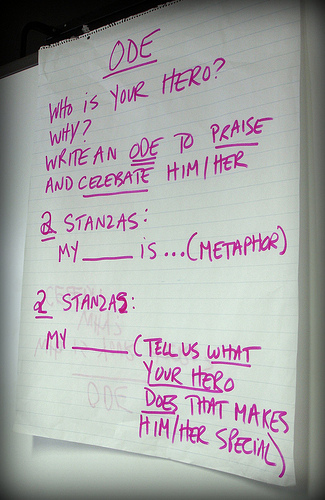 ODE
WHO IS YOUR HERO?
WHY?
WRITE AN ODE TO PRAISE
AND CELEBATE HIM/HER
2 STANZAS:
MY ____ IS...(METAPHOR)
2 STANZAS:
MY ____ (TELL US WHAT
YOUR HERO
DOES THAT MAKES
HIM/HER SPECIAL)
ODE